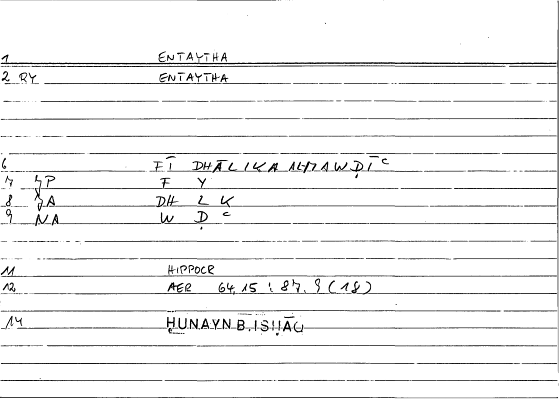 1 ENTAYTHA
2 RY ENTAYTHA
6 FĪ DHĀLIKA ALMAWḌIC
7 YP F Y
8 YA DH L K
9 NA W Ḍ C
11 HIPPOCR
12 AER 64,15 : 87,9 (18)
14 ḤUNAYN B. ISḤĀQ